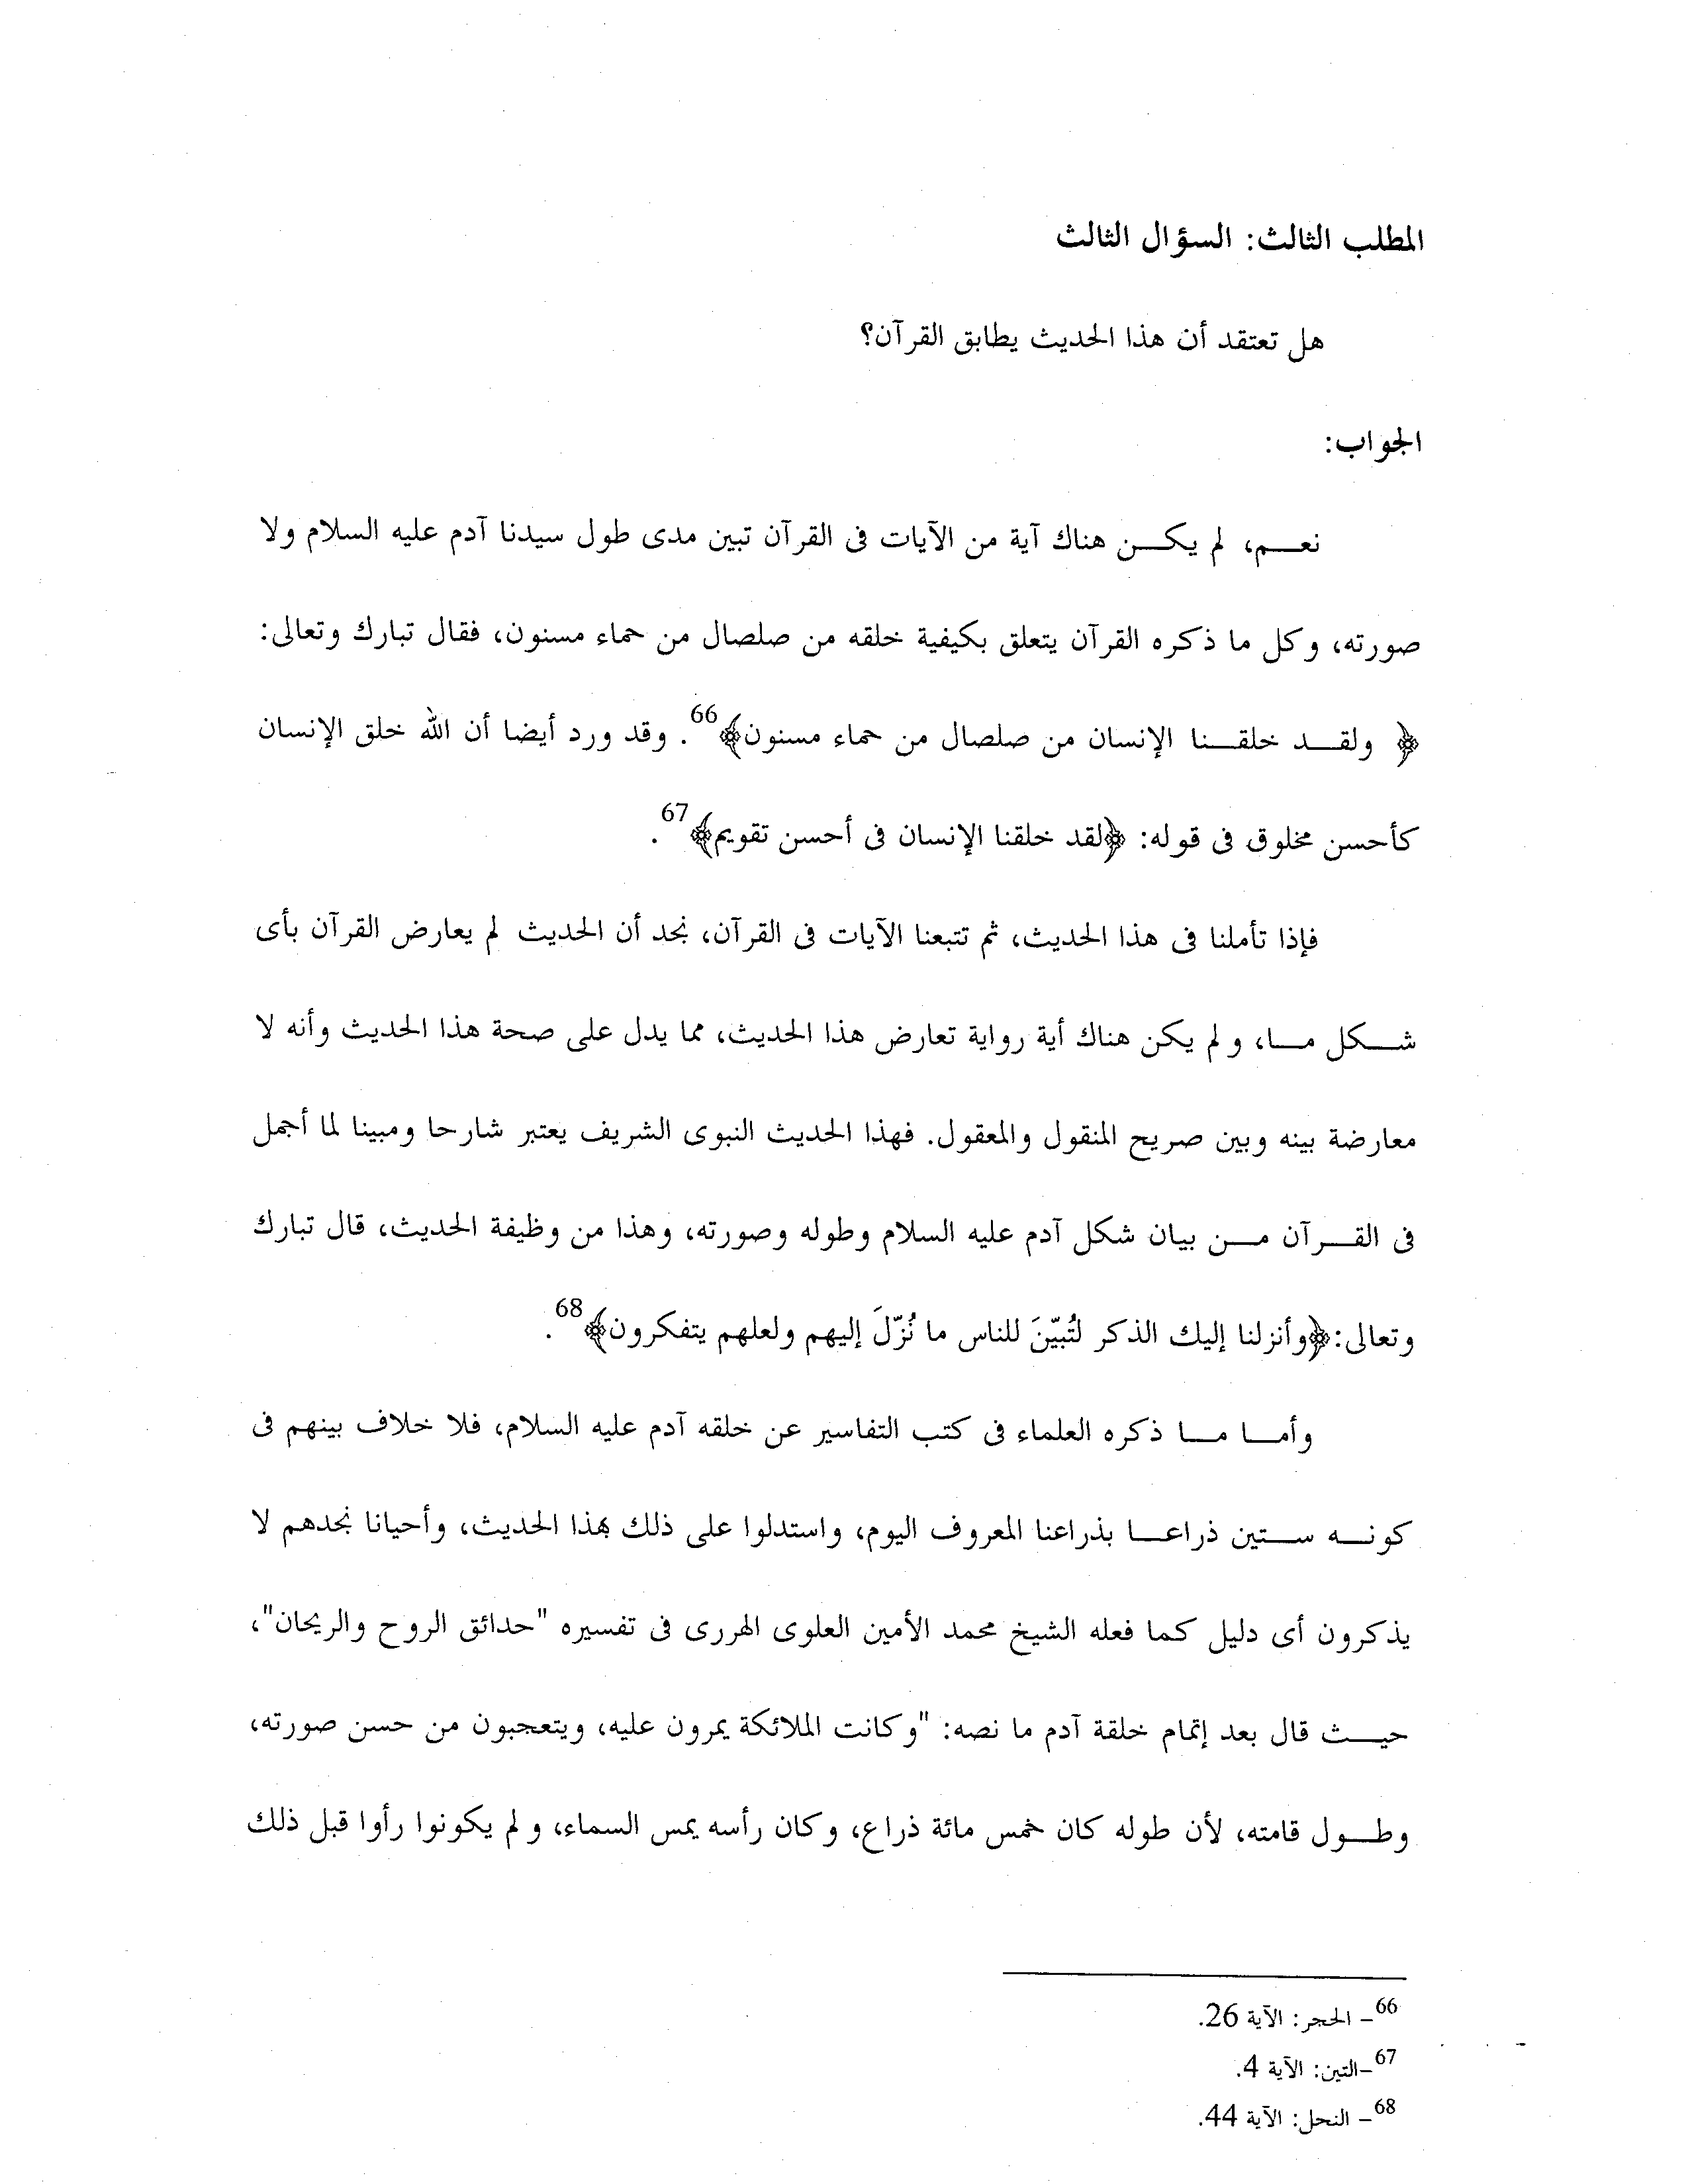 المطلب الثالث: السؤال الثالث
هل تعتقد أن هذا الحديث يطابق القرآن؟
الجواب:
نعم، لم يكن هناك آية من الآيات فى القرآن تبين مدى طول سيدنا آدم عليه السلام ولا
صورته، وكل ما ذكره القرآن يتعلق بكيفية خلقه من صلصال من حماء مسنون، فقال تبارك وتعالى:
﴿ ولقد خلقنا الإنسان من صلصال من حماء مسنون﴾66. وقد ورد أيضا أن الله خلق الإنسان
كأحسن مخلوق فى قوله: ﴿لقد خلقنا الإنسان فى أحسن تقويم﴾67.
فإذا تأملنا فى هذا الحديث، ثم تتبعنا الآيات فى القرآن، نجد أن الحديث لم يعارض القرآن بأى
شكل ما، ولم يكن هناك أية رواية تعارض هذا الحديث، مما يدل على صحة هذا الحديث وأنه لا
معارضة بينه وبين صريح المنقول والمعقول. فهذا الحديث النبوى الشريف يعتبر شارحا ومبينا لما أجمل
فى القرآن من بيان شكل آدم عليه السلام وطوله وصورته، وهذا من وظيفة الحديث، قال تبارك
وتعالى:﴿وأنزلنا إليك الذكر لتُبيّنَ للناس ما نُزّلَ إليهم ولعلهم يتفكرون﴾68.
وأما ما ذكره العلماء فى كتب التفاسير عن خلقه آدم عليه السلام، فلا خلاف بينهم فى
كونه ستين ذراعا بذراعنا المعروف اليوم، واستدلوا على ذلك بهذا الحديث، وأحيانا نجدهم لا
يذكرون أى دليل كما فعله الشيخ محمد الأمين العلوى الهررى فى تفسيره "حدائق الروح والريحان"،
حيث قال بعد إتمام خلقة آدم ما نصه: "وكانت الملائكة يمرون عليه، ويتعجبون من حسن صورته،
وطول قامته، لأن طوله كان خمس مائة ذراع، وكان رأسه يمس السماء، ولم يكونوا رأوا قبل ذلك
66- الحجر: الآية 26.
67-التين: الآية 4.
68- النحل: الآية 44.